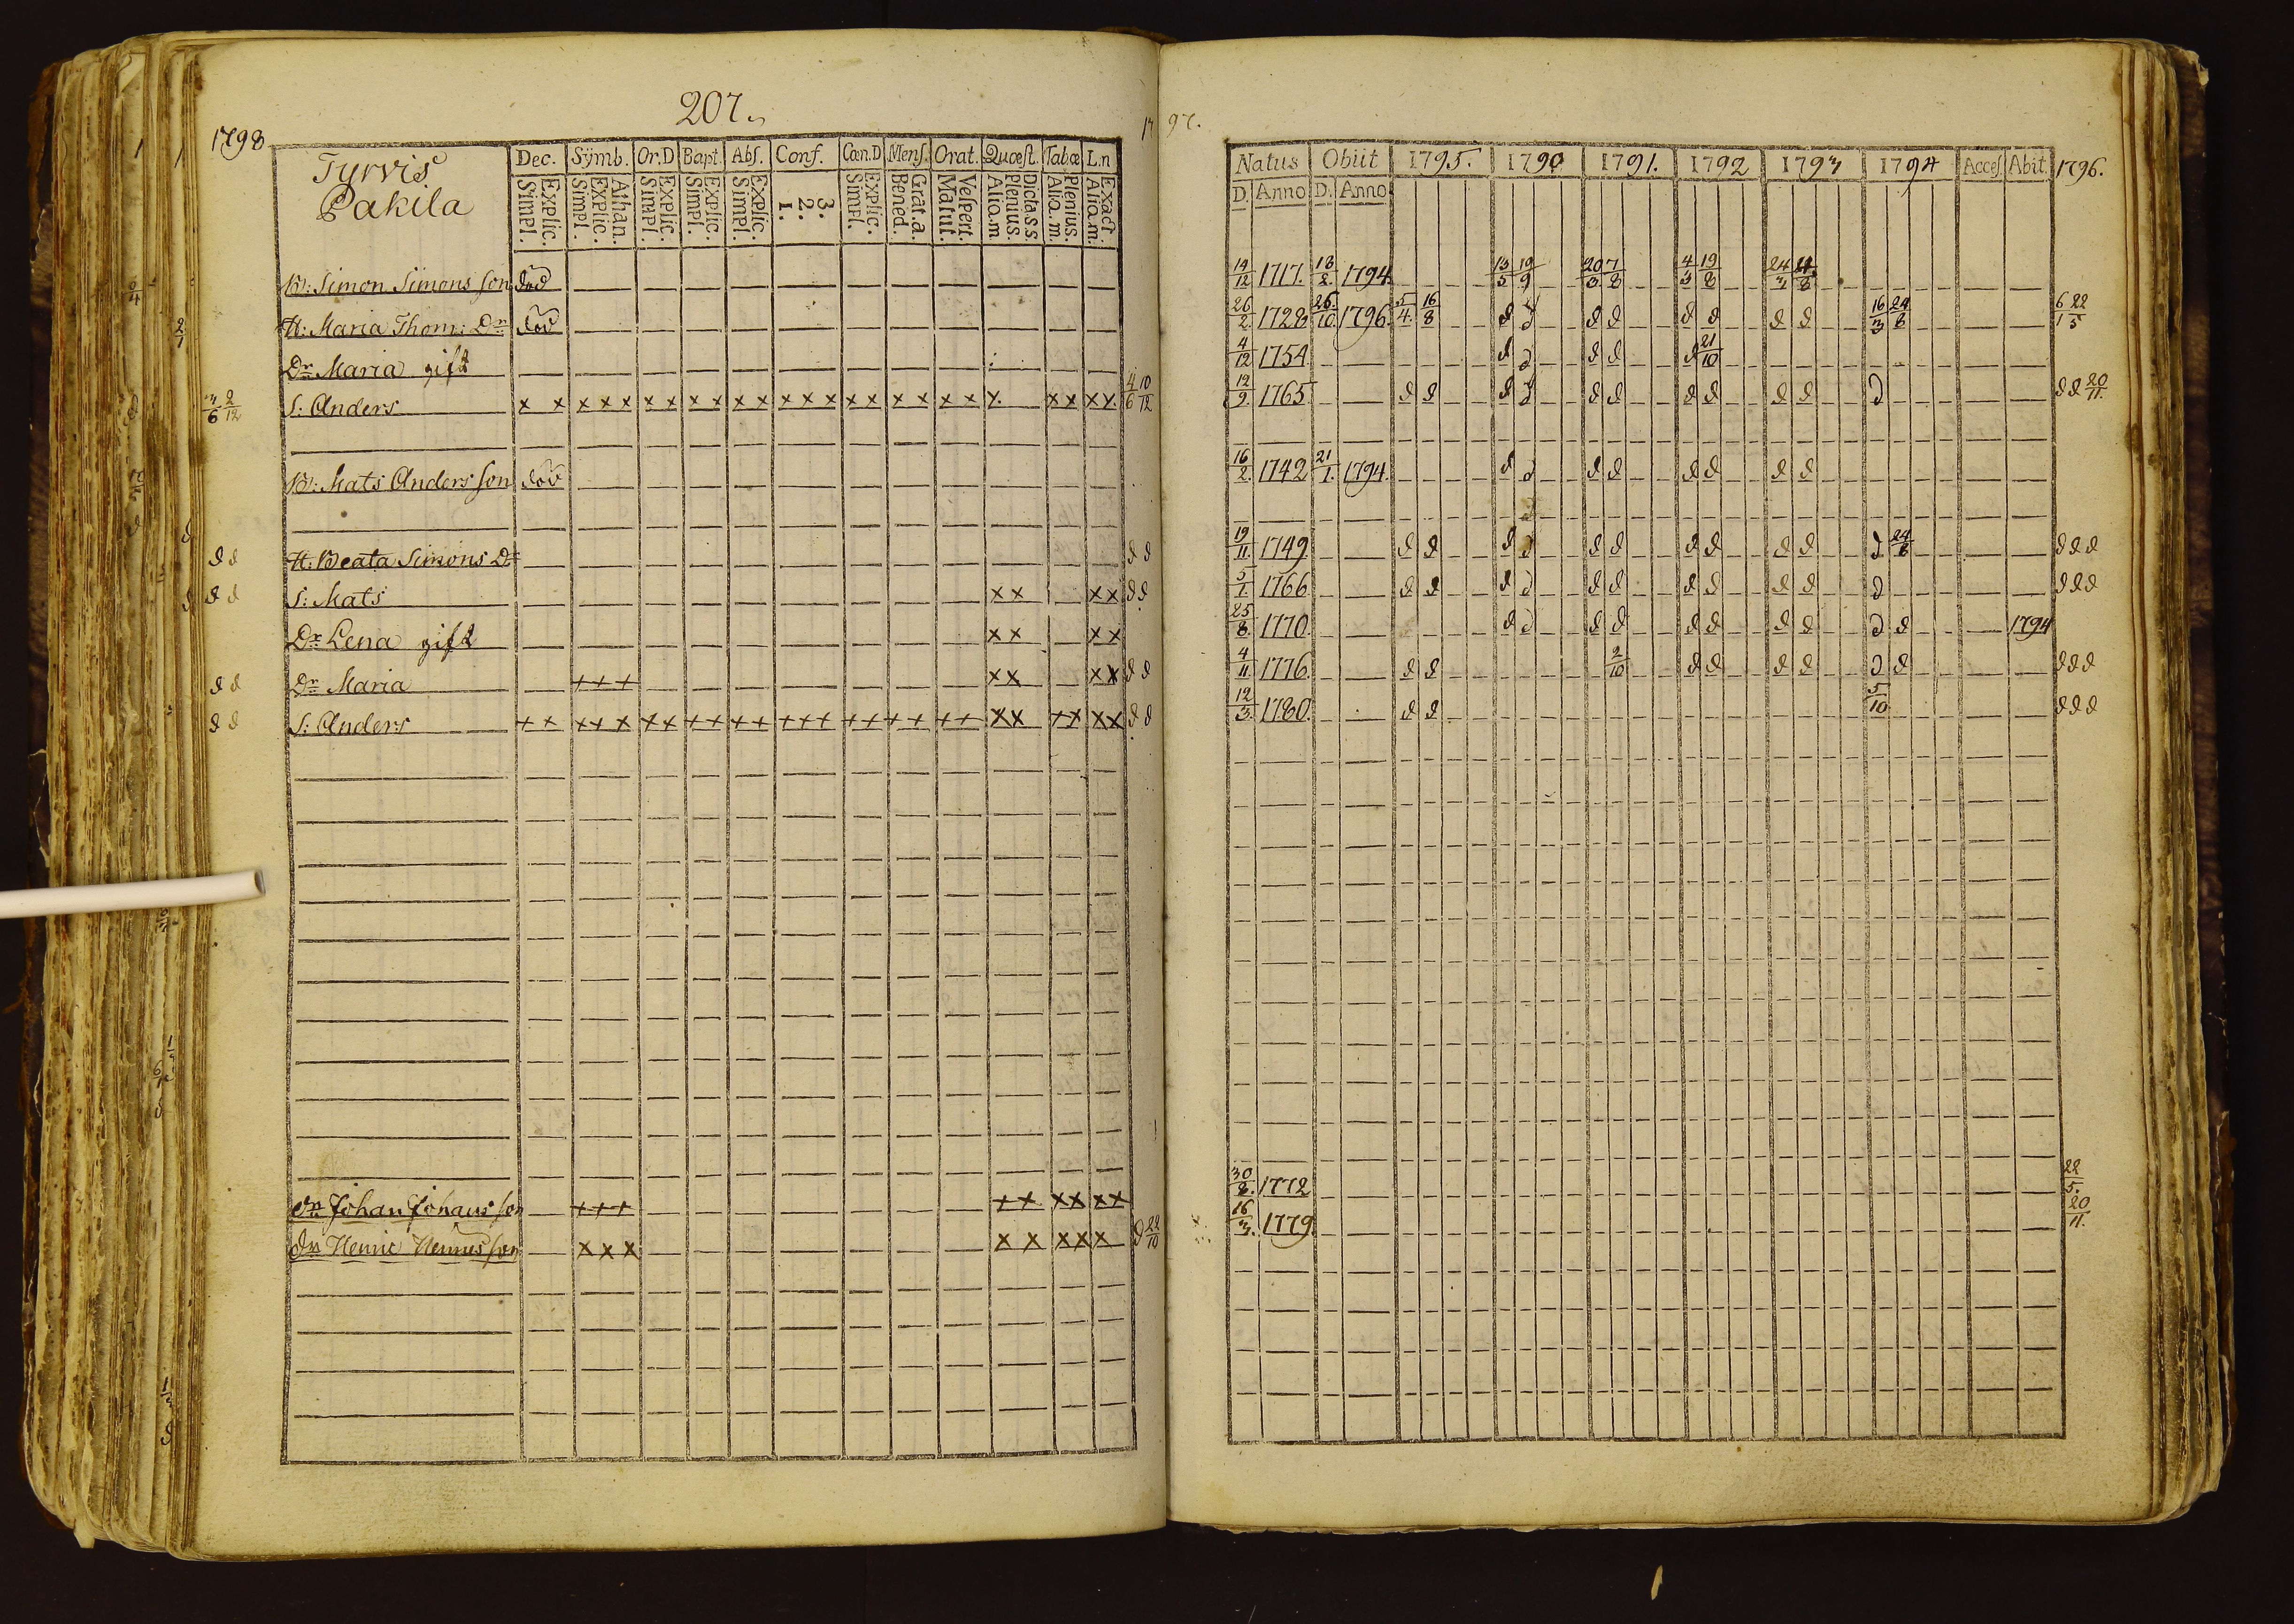 207.
1798
Tyrvis
Pakila
Dec. Sÿmb. Or.D Bapt. Abſ. Conf. Cœn.D Menſ. Orat. Quæſt. Tabœ L.n
Simpl. Explic. Simpl. Explic. Athan. Simpl. Explic. Simpl. Explic. Simpl. Explic. 1. 2. 3. Simpl. Explic. Bened. Grat.a. Matut. Veſpert. Alio.m Plenius. Dicta.s.s. Alio.m. Plenius. Alio.m. Exact.
B: Simon Simons ſon död
H: Maria Thom: Dr död
Dr Maria gift
3/6 2/12 S: Anders x x x x x x x x x x x x x x x x x x x x x x x x x x 4/6 10/12
B: Mats Anders ſon död
d d H: Beata Simons Dr d d
d d S: Mats x x x x d d
Dr Lena gift x x x x
d d Dr Maria + + + x x x x d d
d d S: Anders + + + + x x x + + + + + + + + + + + + + x x + + x x d d
Dn Johan Johans ſon + + + + + x x x x
Dn Henric Henricsſon x x x x x x x x d 22/10
1797.
Natus Obiit 1795. 1790 1791. 1792 1793 1794 Acceſ. Abit. 1796.
D. Anno D. Anno
14/12 1717. 18/2. 1794. 13/3 19/9 20/3 7/8 4/3 19/8 24/3 11/8
26/2. 1728 26./10. 1796. 5/4. 16/8 d d d d d d d d 16/3 24/8 6/1 22/5
4/12 1754. d d d d d 21/10
12/9 1765. d d d d d d d d d d d d d 20/11.
16/2. 1742 21/1. 1794. d d d d d d d d
19/11. 1749 d d d d d d d d d d d 24/8 d d d
5/1. 1766 d d d d d d d d d d d d d d
25/8. 1770. d d d d d d d d d d 1794
4/11. 1776 d d 2/10 d d d d d d d d d
12/3. 1780. d d 5/10 d d d
30/8. 1772 22/5.
16/3. 1779. 20/11.